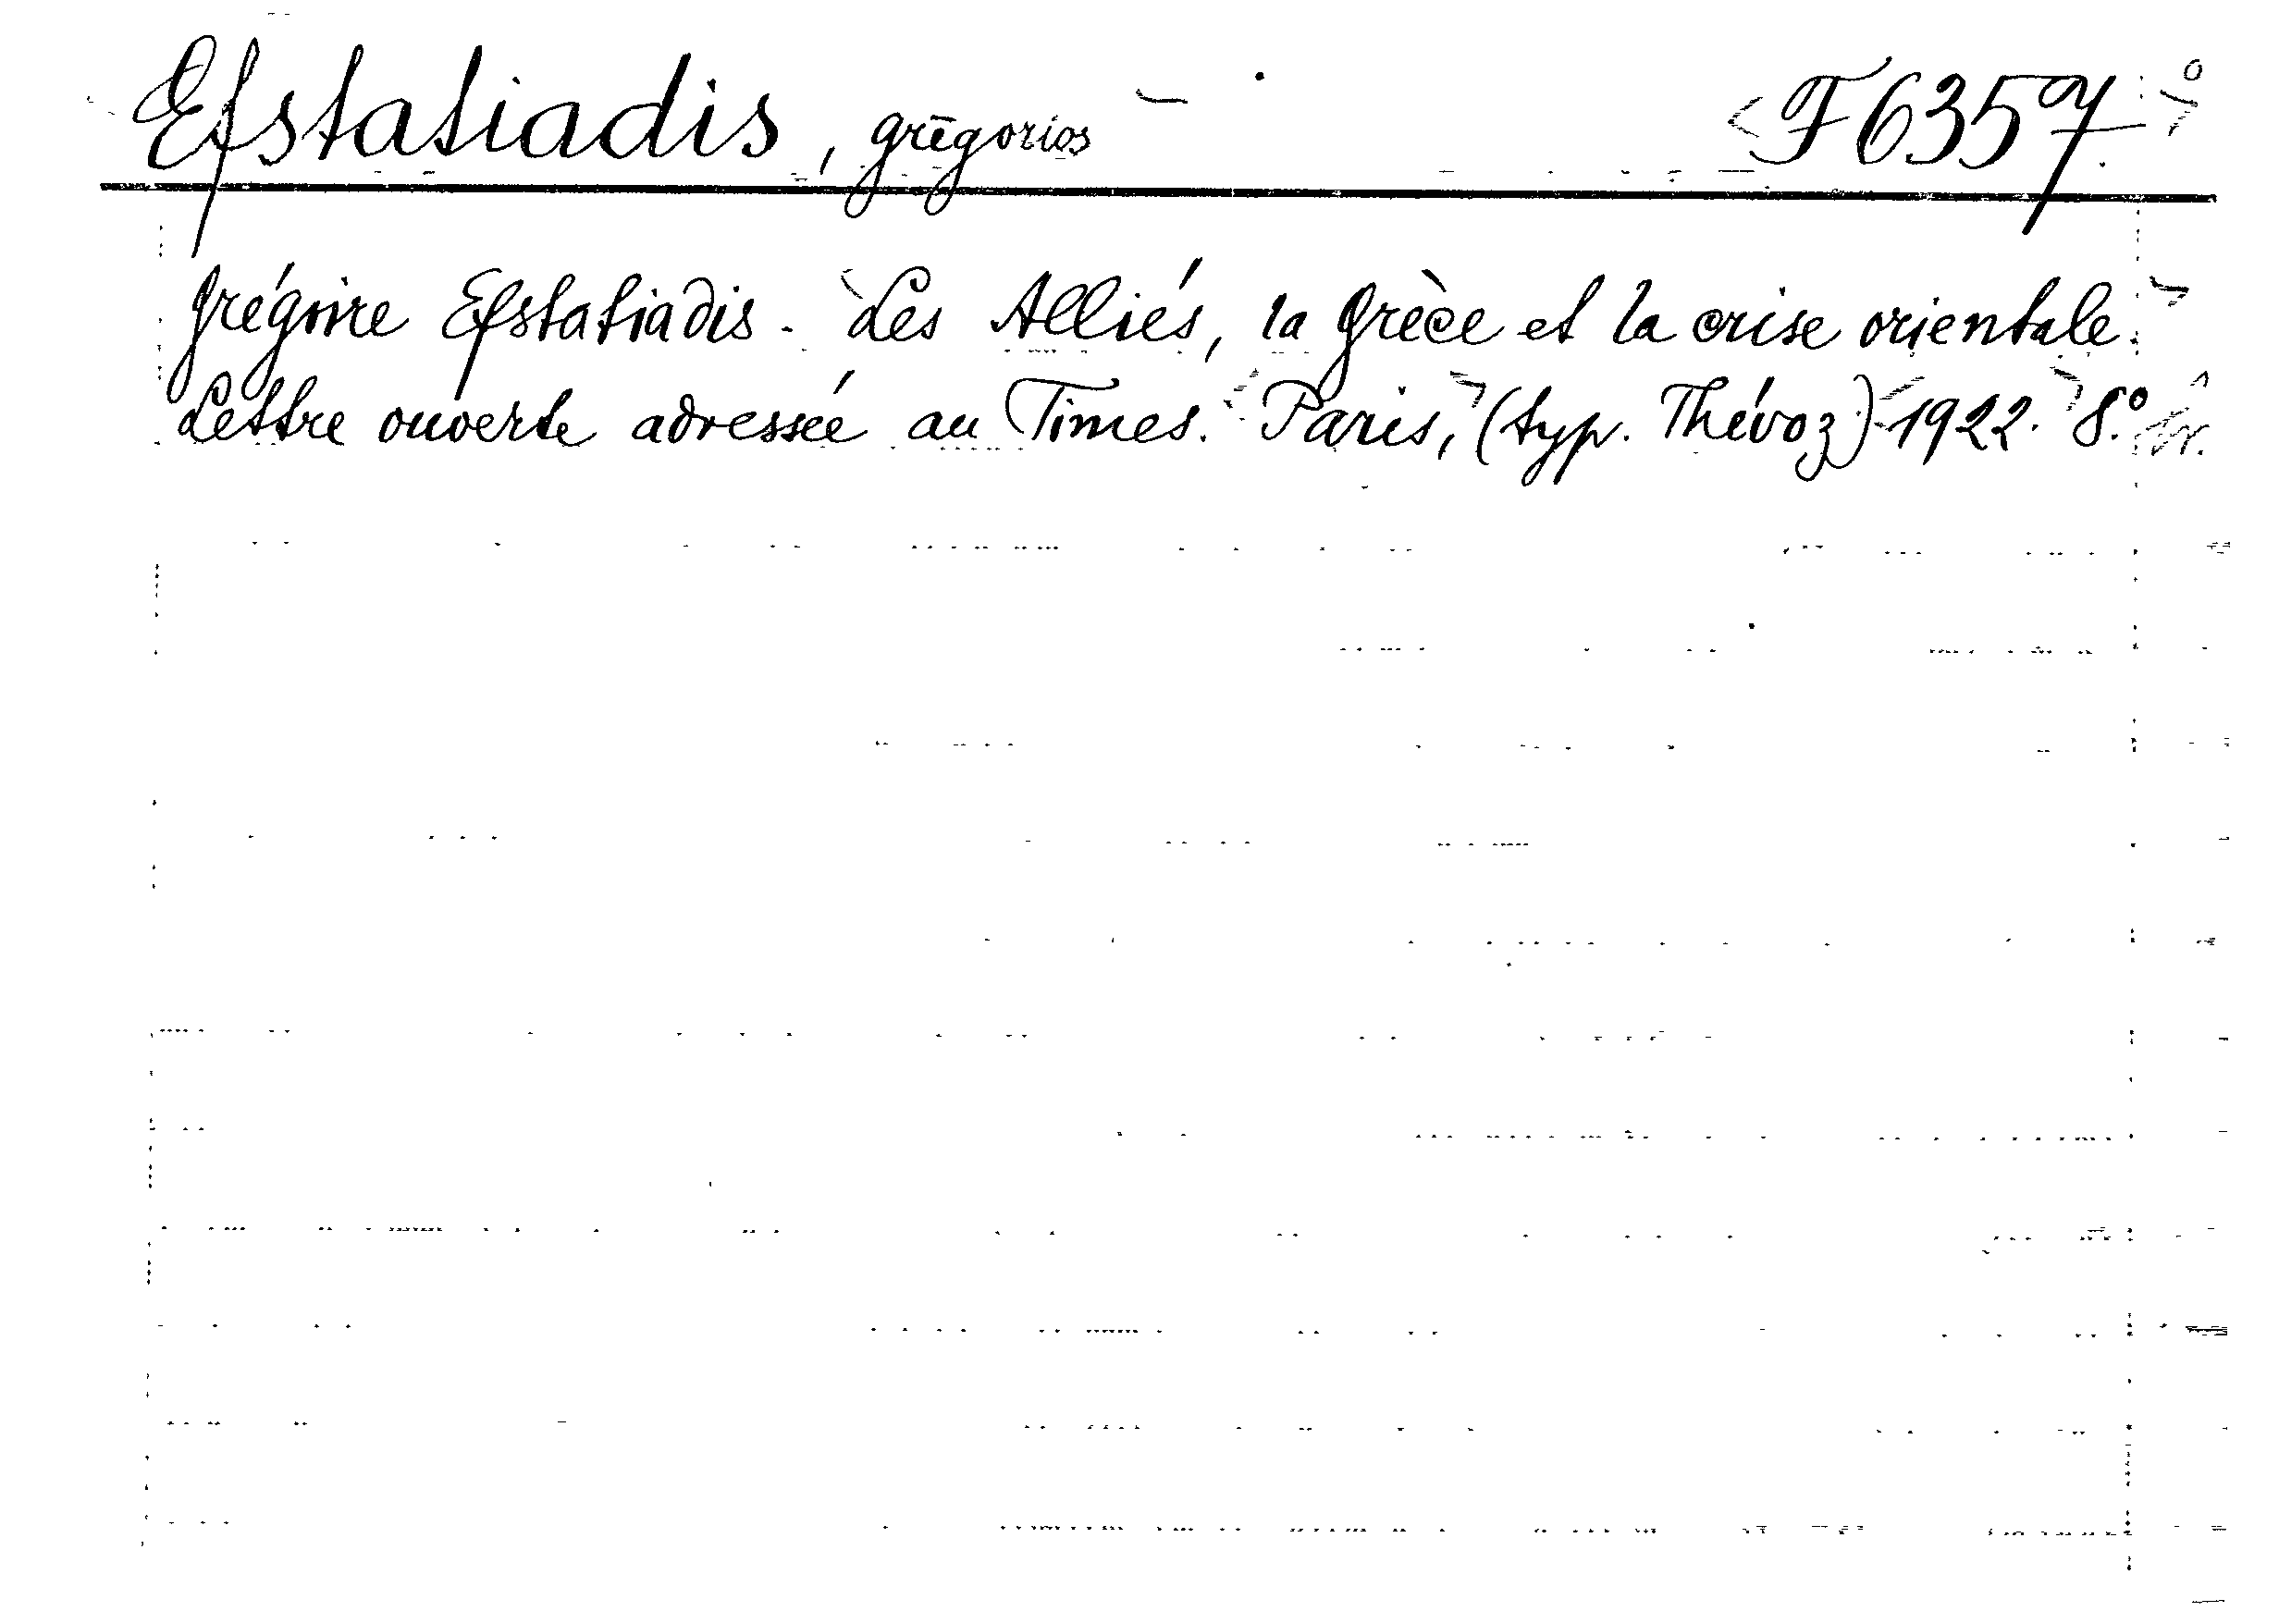 Efstatiadis, Grēgorios F6357
Grégoire Efstatiadis. Les Alliés, la Grèce et la crise orientale.
Lettre ouverte adressée au Times. Paris, (typ. Thévoz) 1922. 8.°